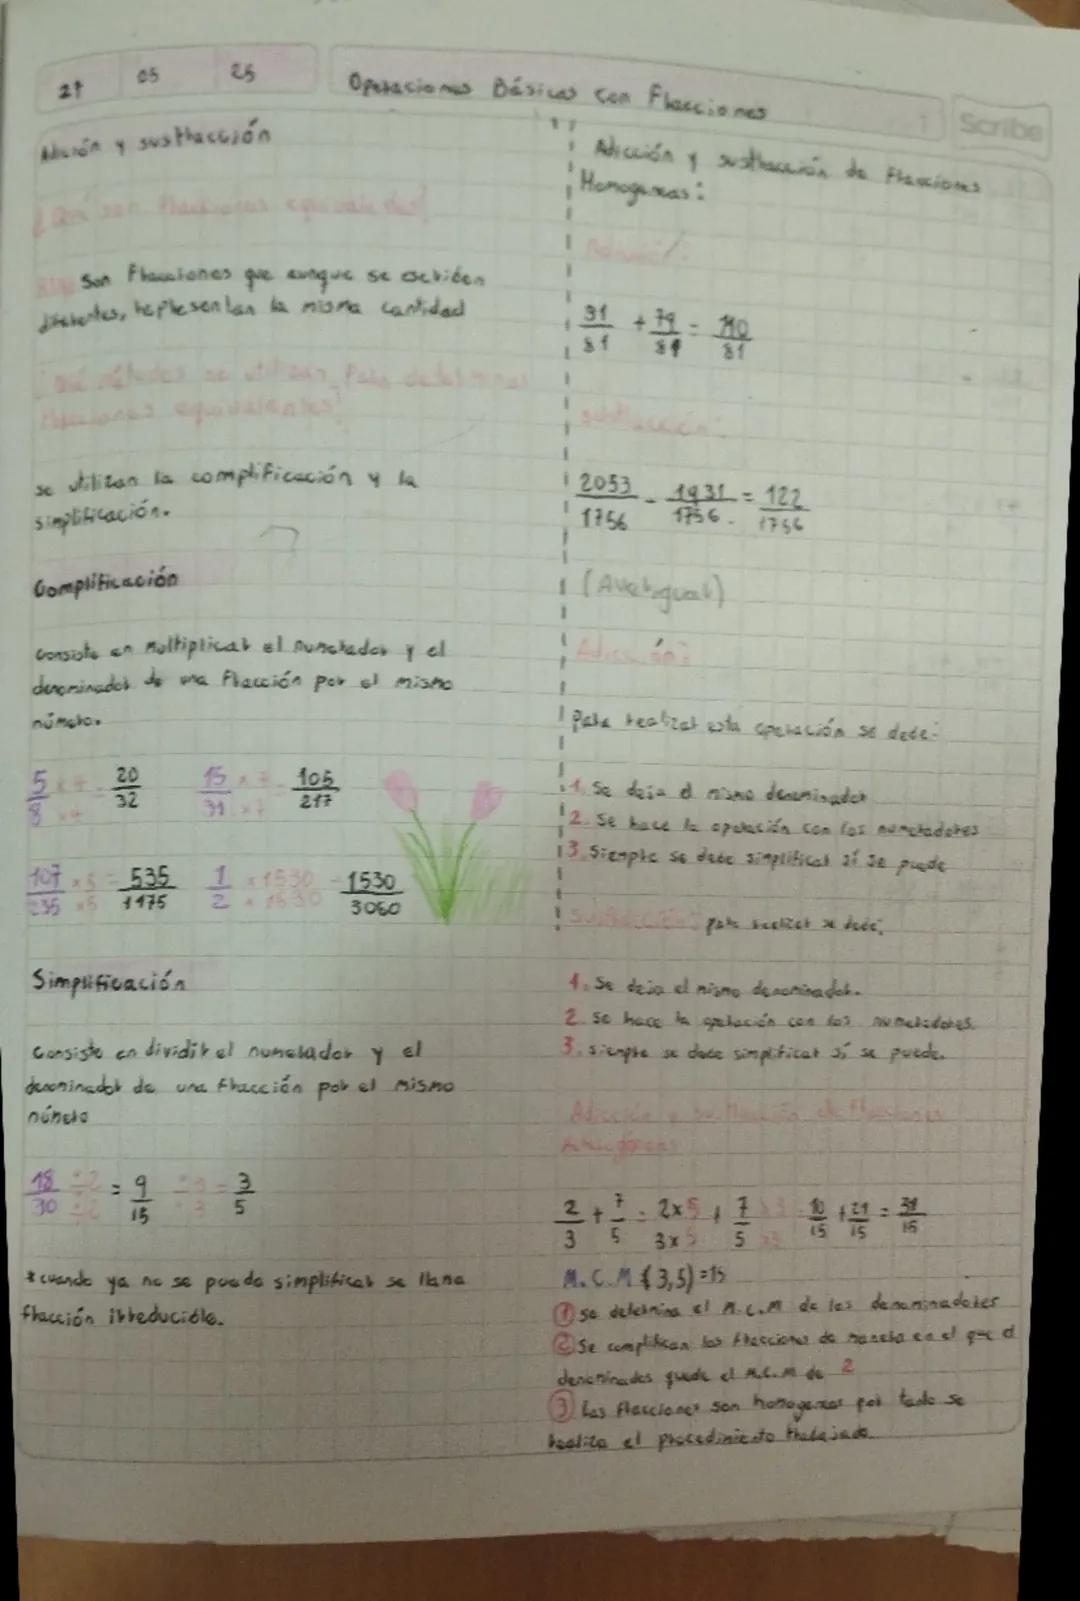 27 05 25
Operaciones Básicas con Fracciones
Scribe
Adición y sustracción
¿Qué son fracciones equivalentes?
Son Fracciones que aunque se escriben
diferentes, representan la misma cantidad
¿Qué métodos se utilizan para determinar
fracciones equivalentes?
se utilizan la complificación y la
simplificación.
Complificación
consiste en multiplicar el numerador y el
denominador de una Fracción por el mismo
número.
5/8 x4/x4 = 20/32 15/31 x7/x7 = 105/217
107/235 x5/x5 = 535/1175 1/2 x1530/x1530 = 1530/3060
Simplificación
Consiste en dividir el numerador y el
denominador de una fracción por el mismo
número
18/30 ÷2/÷2 = 9/15 ÷3/÷3 = 3/5
*cuando ya no se pueda simplificar se llama
fracción irreducible.
Adicción y sustracción de Fracciones
Homogeneas:
Adición:
31/81 + 79/81 = 110/81
sustracción:
2053/1756 - 1931/1756 = 122/1756
Adicción:
Para realizar esta operación se debe:
1. Se deja el mismo denominador
2. Se hace la operación con los numeradores
3. Siempre se debe simplificar si se puede
Sustracción: para realizar se debe:
1. Se deja el mismo denominador.
2. Se hace la operación con los numeradores.
3. siempre se debe simplificar si se puede.
Adicción y sustracción de fracciones
2/3 + 7/5 = 2x5/3x5 + 7/5 x3/x3 = 10/15 + 21/15 = 31/15
M.C.M (3,5)=15
① se determina el M.C.M de los denominadores
② Se complifican las fracciones de manera en el que el
denominador quede el M.C.M de 2
③ Las Fracciones son homogeneas por tanto se
realiza el procedimiento trabajado.